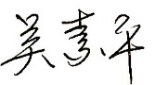 吴素平